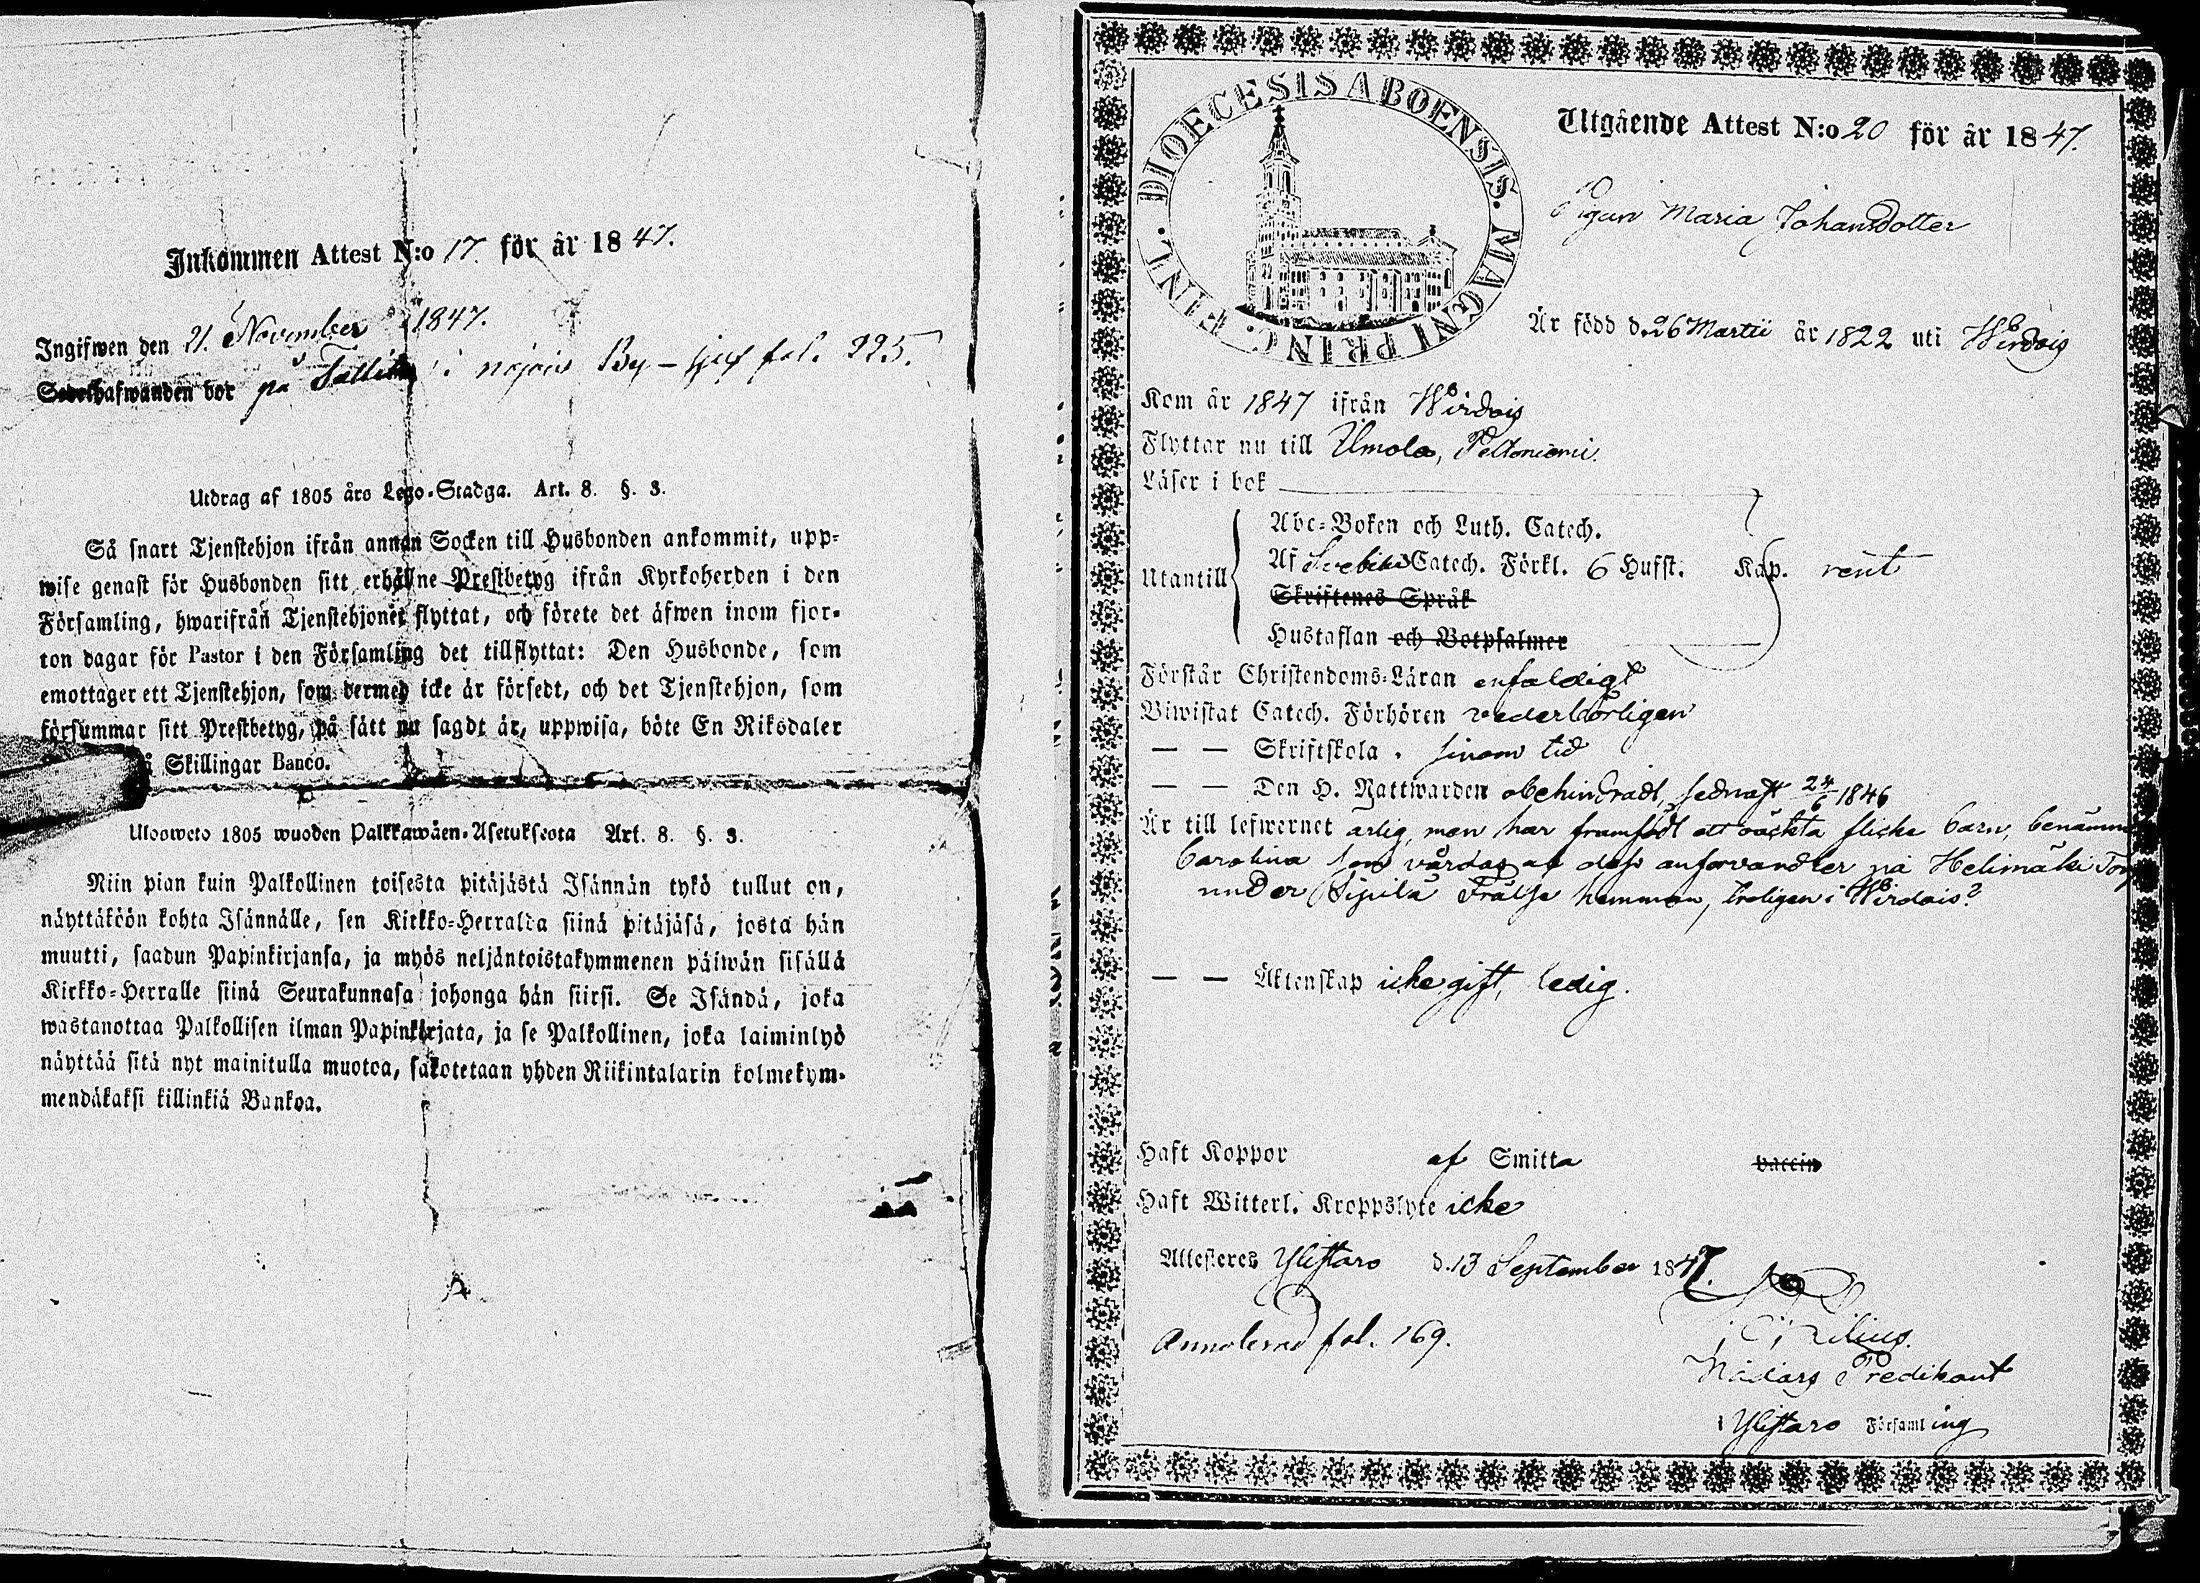 Inkommen Attest N:o 17 för år 1847.
Ingifwen den 21. November 1847.
Sedelhafwanden bor på i By — fol. 225.
Utdrag af 1805 års Lego-Stadga. Art. 8. §. 3.
Så snart Tjenstehjon ifrån annan Socken till Husbonden ankommit, upp-
wise genast för Husbonden sitt erhållne Prestbetyg ifrån Kyrkoherden i den
Församling, hwarifrån Tjenstehjonet flyttat, och förete det äfwen inom fjor-
ton dagar för Pastor i den Församling det tillflyttat: Den Husbonde, som
emottager ett Tjenstehjon, som dermed icke är försedt, och det Tjenstehjon, som
försummar sitt Prestbetyg, på sätt nu sagdt är, uppwisa, böte En Riksdaler
Skillingar Banco.
Ulosweto 1805 wuoden Palkkawäen-Asetuksesta Art. 8. §. 3.
Niin pian kuin Palkollinen toisesta pitäjästä Isännän tykö tullut on,
näyttäköön kohta Isännälle, sen Kirkko-Herralda siinä pitäjäsä, josta hän
muutti, saadun Papinkirjansa, ja myös neljäntoistakymmenen päiwän sisällä
Kirkko-Herralle siinä Seurakunnasa johonga hän siirsi. Se Isändä, joka
wastanottaa Palkollisen ilman Papinkirjata, ja se Palkollinen, joka laiminlyö
näyttää sitä nyt mainitulla muotoa, sakotetaan yhden Riikintalarin kolmekym-
mendäkaksi killinkiä Bankoa.
DIOECESIS ABOENSIS. MAGNI PRINC. FINL.
Utgående Attest N:o 20 för år 1847.
Pigan Maria Johansdotter
Är född d. 26 Martii år 1822 uti Wirdois
Kom år 1847 ifrån Wirdois
Flyttar nu till Ilmola, Peltoniemi.
Läser i bok
Utantill
Abc-Boken och Luth. Catech.
Af Svebilii Catech. Förkl. 6 Hufst. Kap. rent
Skriftenes Språk
Hustaflan och Botpsalmer
Förstår Christendoms-Läran enfaldigt
Biwistat Catech. Förhören vederbörligen
— — Skriftskola . sinom tid
— — Den H. Nattwarden obehindradt, sednast 24/6 1846
Är till lefwernet ärlig, men har framfödt ett oäckta flicke barn, benämnd
Carolina som vårdas af dess anförvandter på Helimäki Torp
under Sipilä Frälse hemman, troligen i Wirdois?
— — Äktenskap icke gift, ledig.
Haft Koppor af Smitta vaccin
Haft Witterl. Kroppslyte icke
Attesteres Ylistaro d. 13 September 1847.
Annoterad fol. 169.
Nådårs Predikant
i Ylistaro Församling